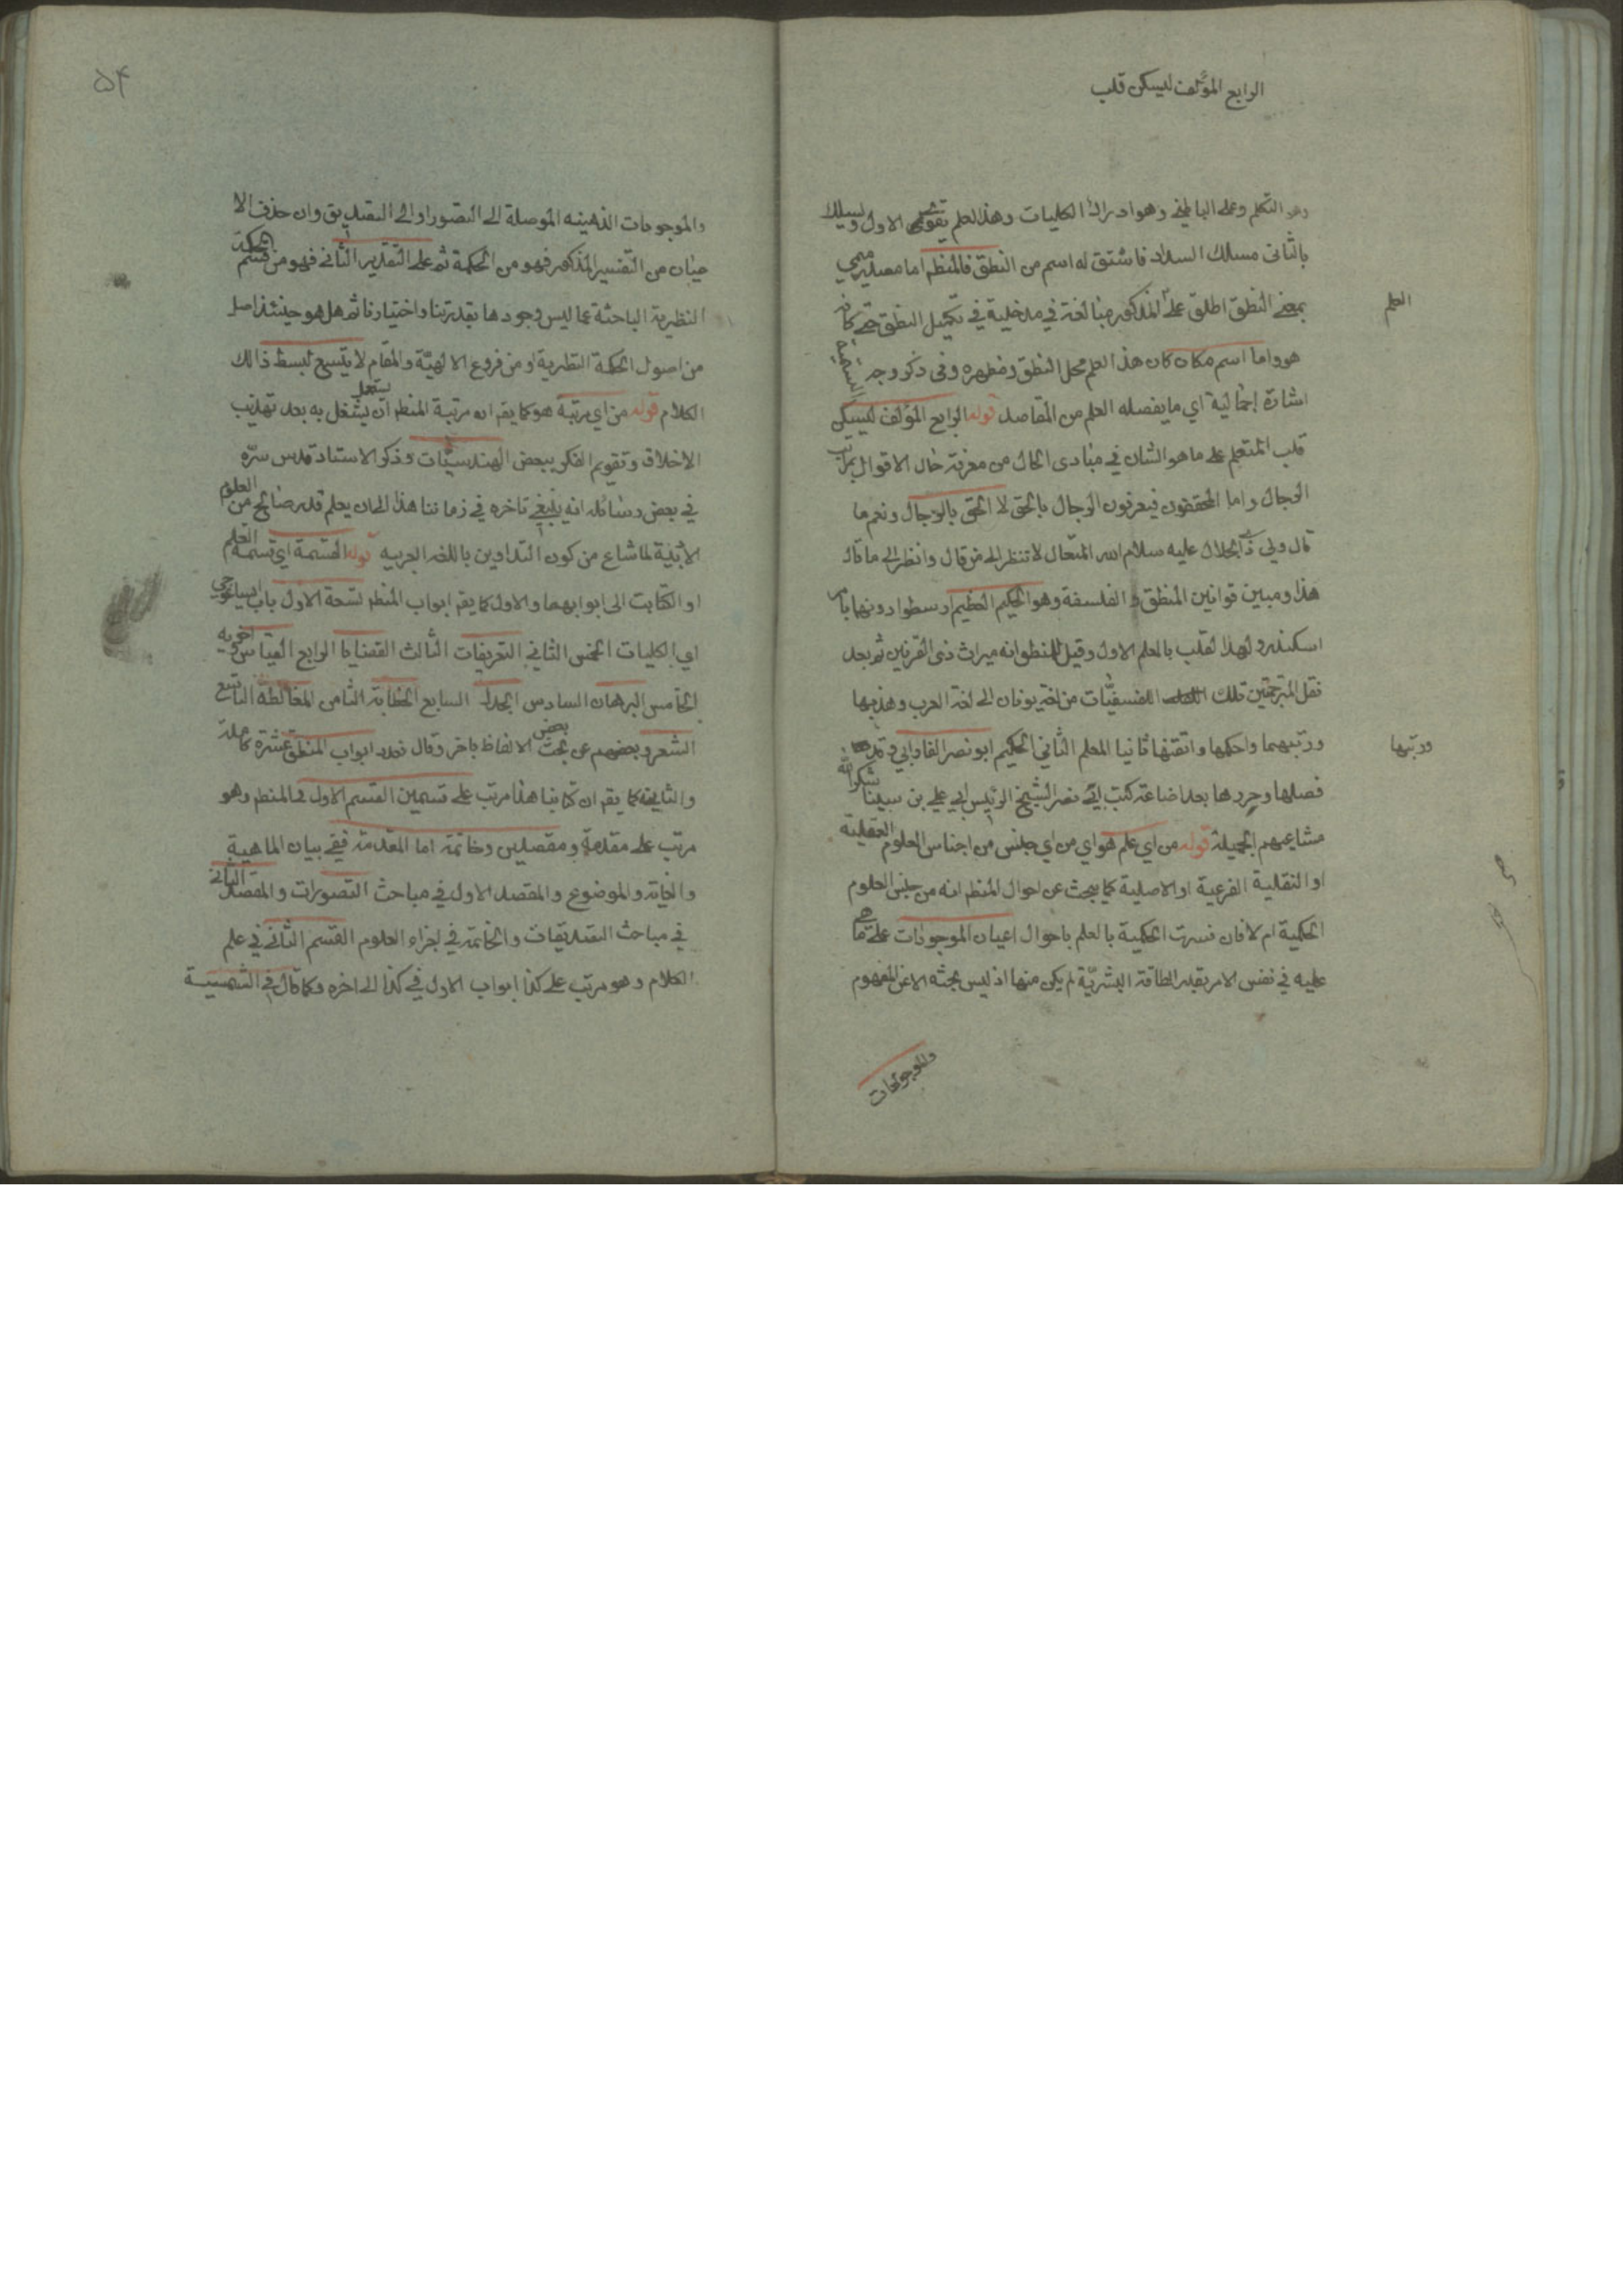 الرابع المؤلف ليسكن قلب
وهو التكلم وعلى الباطني وهو ادراك الكليات وهذا العلم يقوى الاول ويسلك
بالثانى مسلك السداد فاشتق له اسم من النطق فالمنطم اما مصدر ميمي
بمعنى النطق اطلق على المذكور مبالغة في مدخلية في تكميل النطق حتى كانه
العلم
هو واما اسم مكان كان هذا العلم محل النطق ومظهره وفى ذكر وجه التسمية
اشارة إجمالية اي ما يفصله العلم من المقاصد قوله الرابع المؤلف ليسكن
قلب المتعلم على ما هو الشان في مبادى الحال من معرفة حال الاقوال بمراتب
الرجال واما المحققون فيعرفون الرجال بالحق لا الحق بالرجال ونعم ما
قال ولي ذي الجلال عليه سلام الله المتعال لا تنظر الى من قال وانظر الى ما قال
هذا ومبين قوانين المنطق و الفلسفة وهو الحكيم العظيم ارسطو ادونها بامر
اسكندر ولهذا لقلب بالمعلم الاول وقيل للمنطو انه ميراث ذى القرنين ثم بعد
نقل المترجمين تلك الفلسفيّات من لغة يونان الى لغة العرب وهذبها
ورتبهما واحكمها واتقنها ثانيا المعلم الثاني الحكيم ابو نصر الفارابي وقد
ورتبها
فصلها وحررها بعد اضاعة كتب ابي نصر الشيخ الرئيس ابي علي بن سينا شكر الله
مشاعيهم الجميلة قوله من اي علم هو اي من اي جنس من اجناس العلوم العقلية
او النقلية الفرعية او الاصلية كما يبحث عن احوال المنطم انه من جنس العلوم
الحكمية ام لا فان فسرت الحكمية بالعلم باحوال اعيان الموجودات على ما هي
عليه في نفس الامر بقدر الطاقة البشريّة لم يكن منها اذ ليس بحثه الا عن المفهوم
والموجودات
۵۴
والموجودات الذهنيه الموصلة الى التصور او الى التصديق وان حذف الا
عيان من التفسير المذكور فهو من الحكمة ثم على التقدير الثاني فهو من قسم الحكمة
النظرية الباحثة عما ليس وجودها بقدرتنا واختيارنا ثم هل هو حينئذ اصل
من اصول الحكمة النظرية او من فروع الالهيّة والمقام لا يتسع لبسط ذالك
الكلام قوله من اي مرتبة هو كما يقم ان مرتبة المنطم ان يشغل به بعد تهذيب
الاخلاق وتقويم الفكر ببعض الهندسيّات وذكر الاستاد قدس سرّه
في بعض رسائله انه ينبغي تاخره في زماننا هذا الى ان يعلم قدر صالح من العلوم
الادبية لما شاع من كون التداوين باللغه العربيه قوله القسمة اي قسمة العلم
او الكتابت الى ابوابهما والاول كما يقم ابواب المنطم تسعة الاول باب ايساغوجي
اي الكليات الخمس الثاني التعريفات الثالث القضايا الرابع القياس واخويه
الخامس البرهان السادس الجدل السابع الخطابة الثامن المغالطة التاسع
الشعر وبعضهم عن بحث بعض الالفاظ باخر وقال نعدد ابواب المنطق عشرة كاملة
والثاني كما يقم ان كتابنا هذا مرتب على قسمين القسم الاول فى المنطم وهو
مرتب على مقدمة ومقصدين وخاتمة اما المقدمة ففي بيان الماهية
والغاية والموضوع والمقصد الاول في مباحث التصورات والمقصد الثاني
في مباحث التصديقات والخاتمة في اجزاء العلوم القسم الثاني في علم
الكلام وهو مرتب على كذا ابواب الاول في كذا الى اخره وكما قال في الشمسية